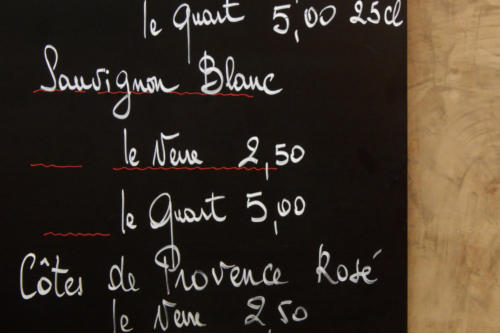 le Quart 5,00 25cl
Sauvignon Blanc
le Verre 2,50
le Quart 5,00
Côtes de Provence Rosé
le Verre 2,50